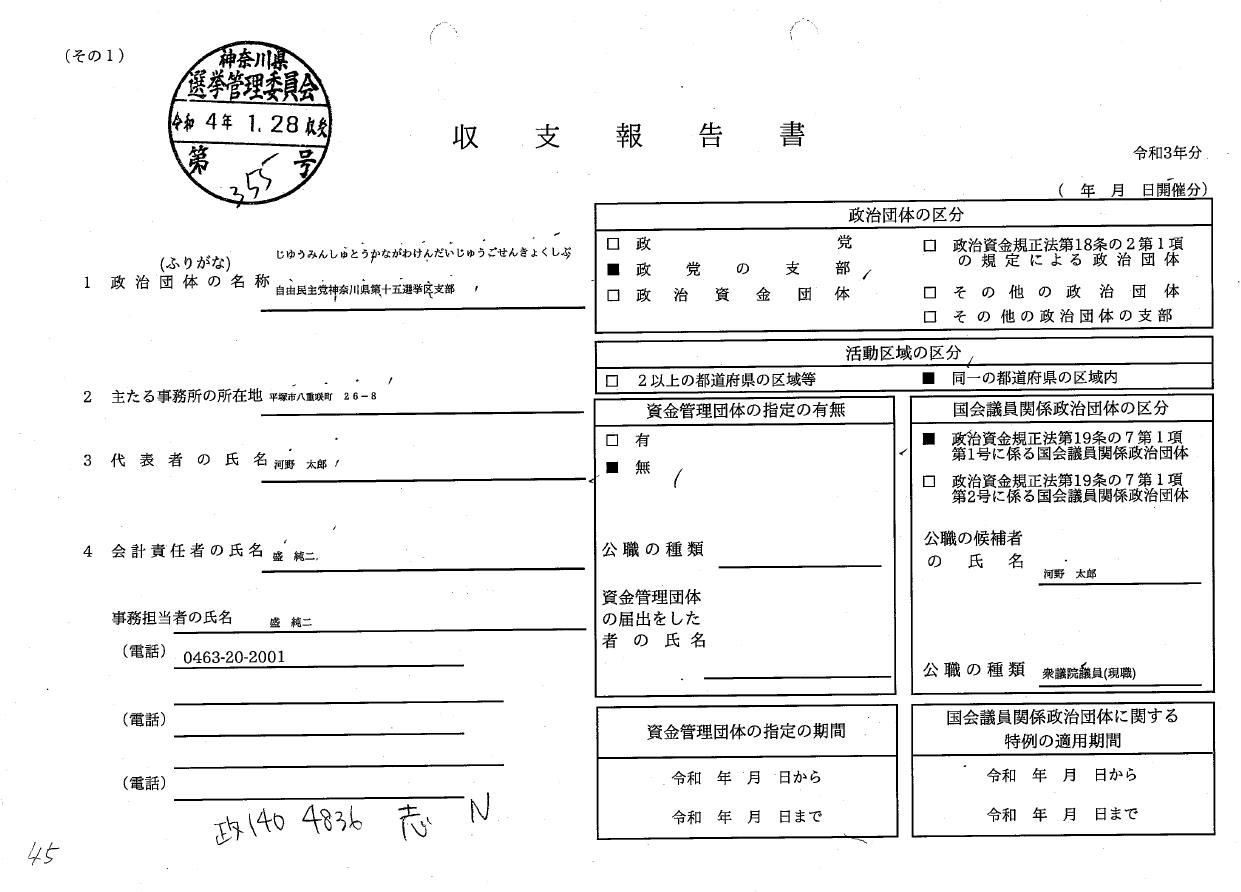 (その1)
神奈川県
選挙管理委員会
令和 4年 1.28 収受
第 355 号
収支報告書
令和3年分
( 年 月 日開催分)
(ふりがな)
じゆうみんしゅとうかながわけんだいじゅうごせんきょくしぶ
1 政治団体の名称 自由民主党神奈川県第十五選挙区支部
2 主たる事務所の所在地 平塚市八重咲町 26-8
3 代表者の氏名 河野 太郎
4 会計責任者の氏名 盛 純二
事務担当者の氏名 盛 純二
(電話) 0463-20-2001
(電話)
(電話)
政140 4836 志 N
45
政治団体の区分
□ 政党
■ 政党の支部
□ 政治資金団体
□ 政治資金規正法第18条の2第1項
の規定による政治団体
□ その他の政治団体
□ その他の政治団体の支部
活動区域の区分
□ 2以上の都道府県の区域等
■ 同一の都道府県の区域内
資金管理団体の指定の有無
□ 有
■ 無
公職の種類
資金管理団体
の届出をした
者の氏名
国会議員関係政治団体の区分
■ 政治資金規正法第19条の7第1項
第1号に係る国会議員関係政治団体
□ 政治資金規正法第19条の7第1項
第2号に係る国会議員関係政治団体
公職の候補者
の氏名 河野 太郎
公職の種類 衆議院議員(現職)
資金管理団体の指定の期間
令和 年 月 日から
令和 年 月 日まで
国会議員関係政治団体に関する
特例の適用期間
令和 年 月 日から
令和 年 月 日まで